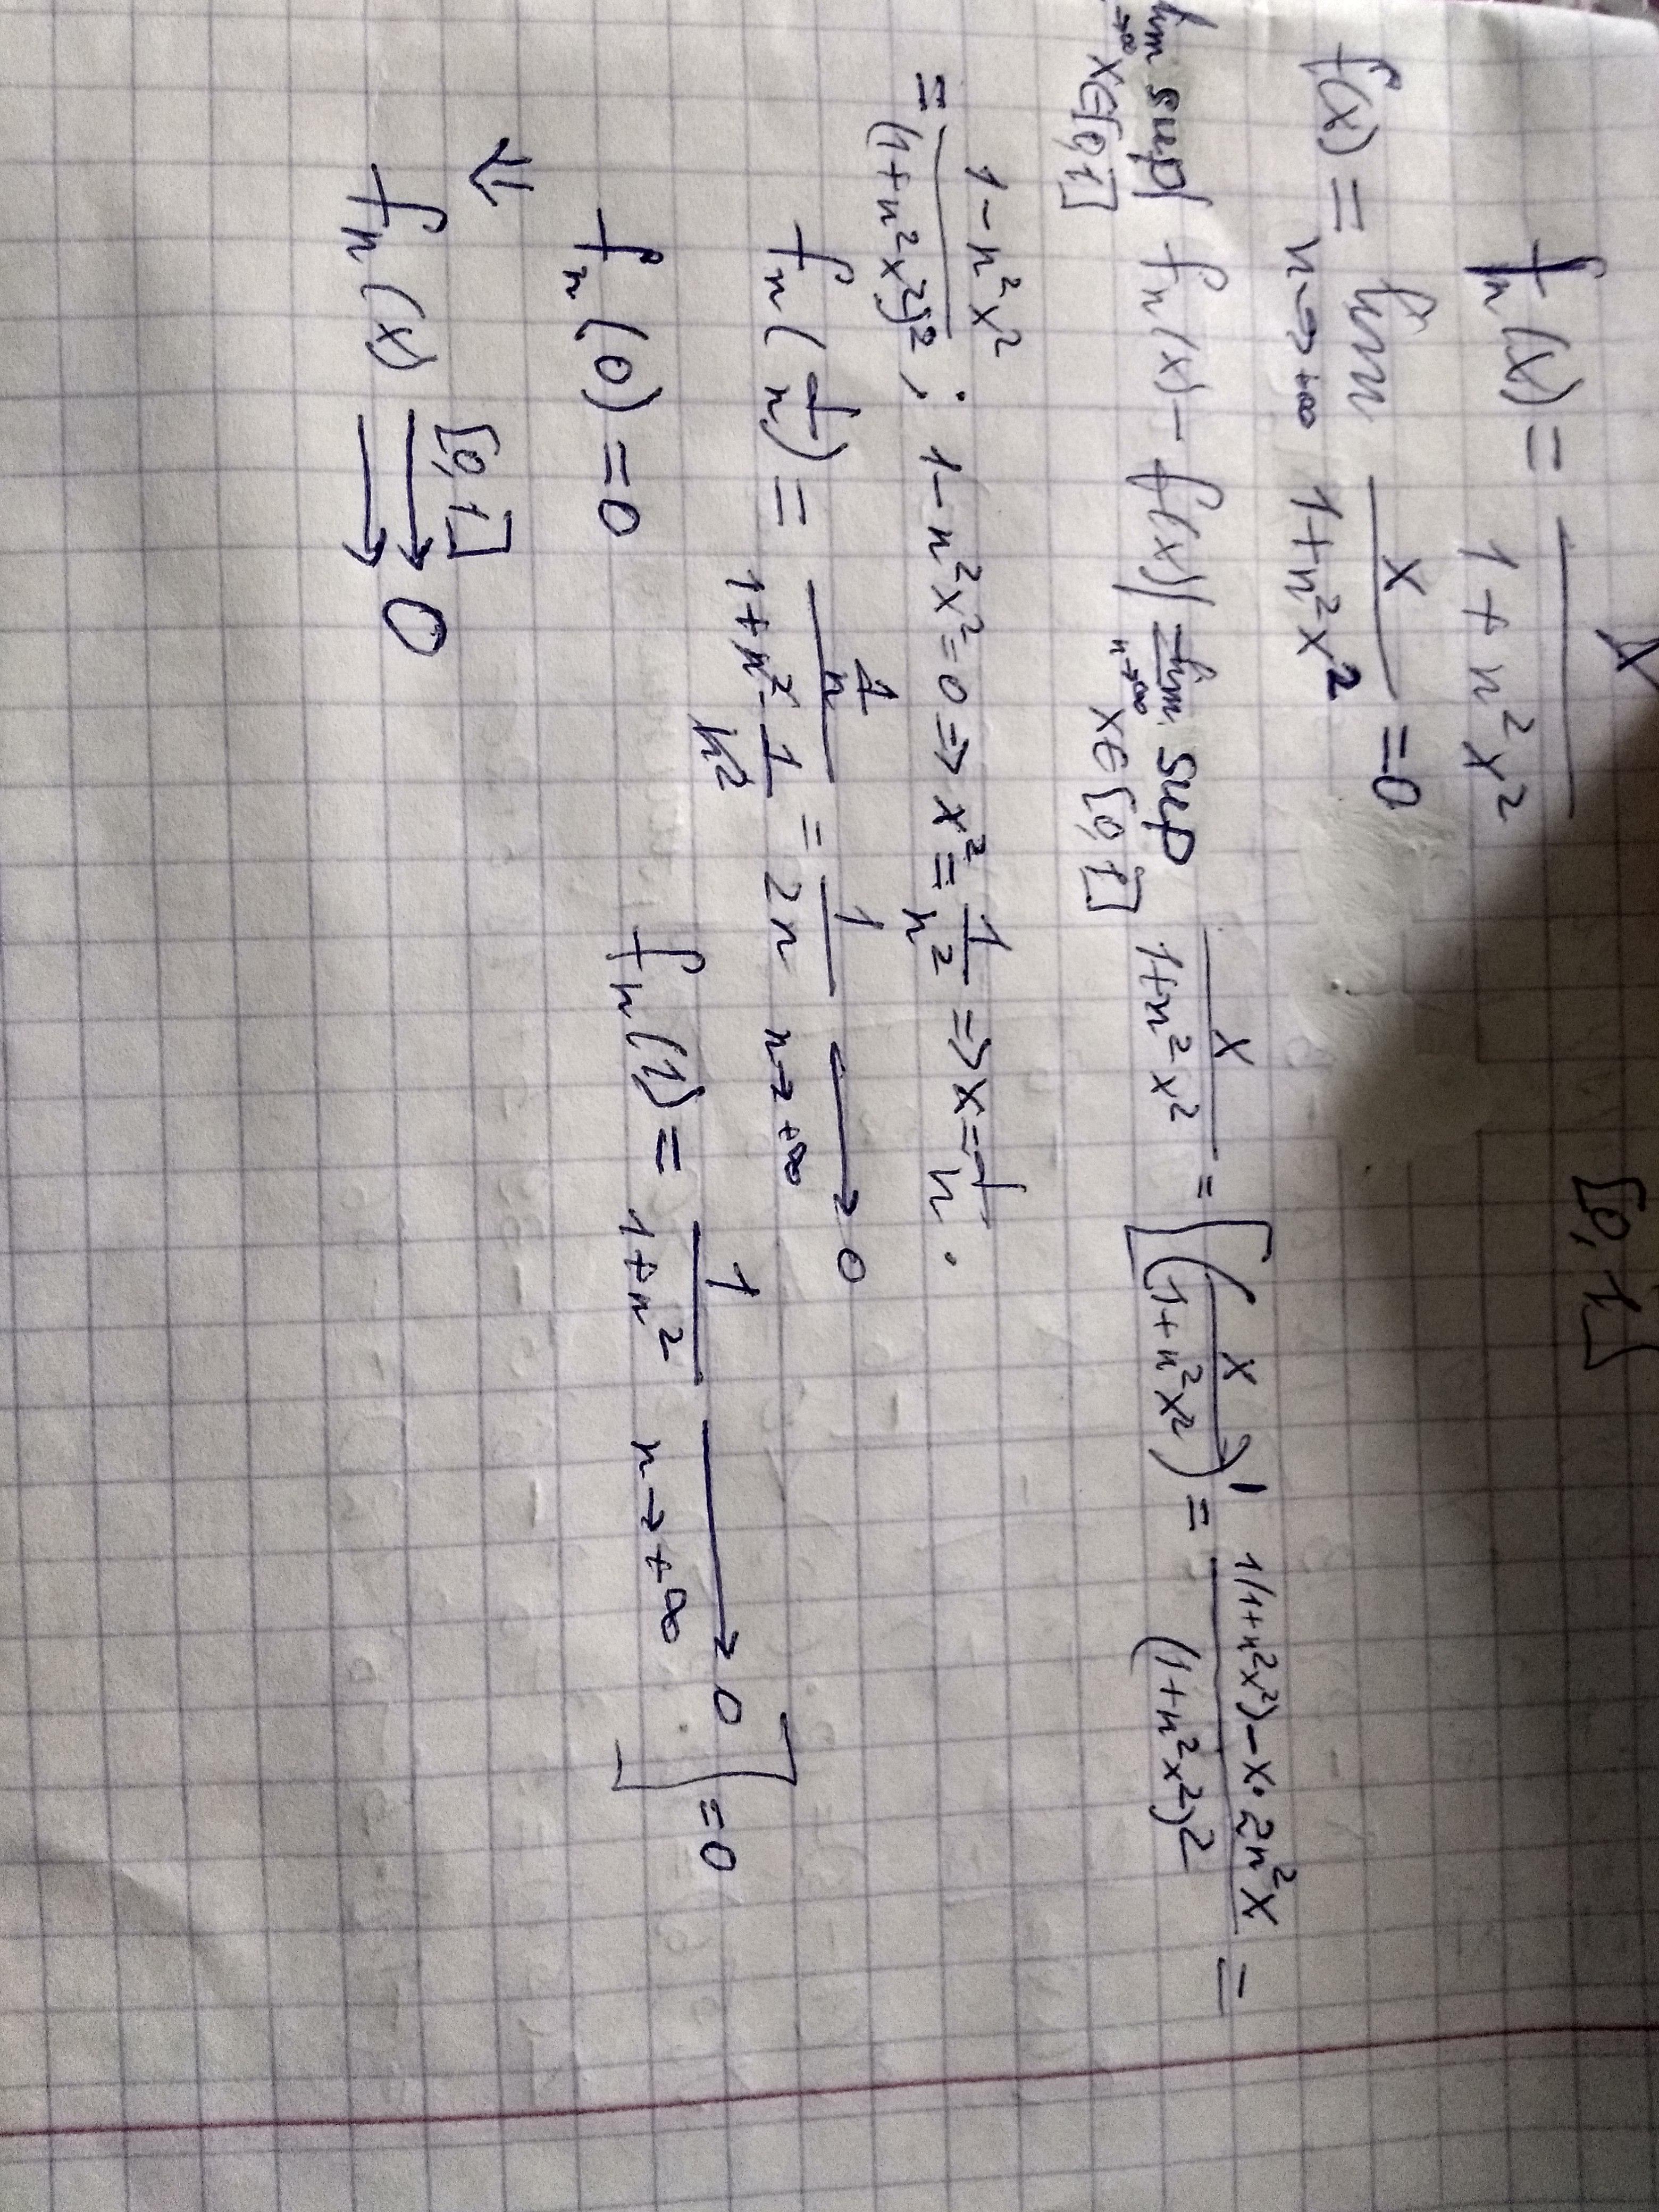 fₙ(x) = x/(1+n²x²) [0,1]
f(x) = lim n→+∞ x/(1+n²x²) = 0
lim →∞ sup x∈[0,1] |fₙ(x) − f(x)| = lim n→∞ sup x∈[0,1] x/(1+n²x²) = [(x/(1+n²x²))' = (1(1+n²x²) − x·2n²x)/(1+n²x²)² =
= (1−n²x²)/(1+n²x²)²; 1−n²x²=0 ⇒ x² = 1/n² ⇒ x = 1/n.
fₙ(1/n) = (1/n)/(1+n²·1/n²) = 1/2n ⟶ n→+∞ 0
fₙ(0) = 0 fₙ(1) = 1/(1+n²) ⟶ n→+∞ 0] = 0
⇓
fₙ(x) ⇉ [0,1] 0